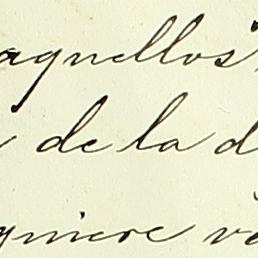 aquellos
de la d
quiere ve